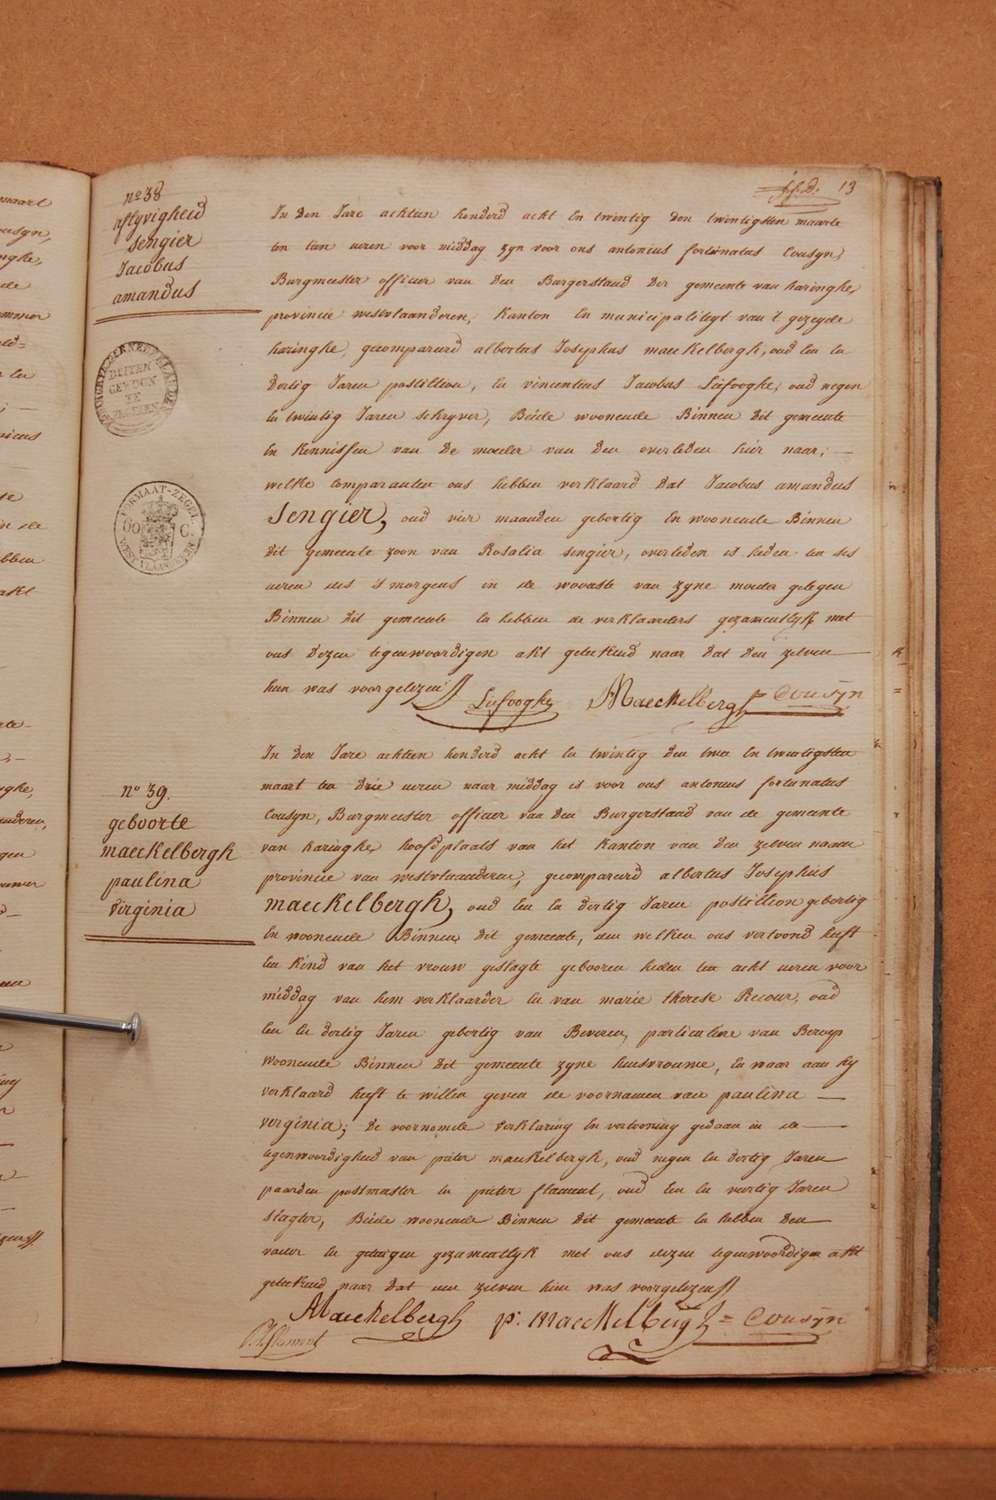 13
no 38
aflyvigheid
sengier
Jacobus
amandus
In den Jare achtien honderd acht en twintig den twintigsten maarte
ten tien ueren voor middag zyn voor ons antonius fortunatus Cousyn,
Burgmeester officier van den Burgerstand der gemeente van haringhe,
provincie westvlaanderen, Kanton en municipaliteyt van 't gezeyde
haringhe, gecompareerd albertus Josephus maeckelbergh, oud een en
dertig Jaren postillion, en vincentius Jacobus Lefooghe, oud negen
en twintig Jaren schryver, Beide woonende Binnen dit gemeente
en kennissen van de moeder van den overleden hier naar; —
welke comparanten ons hebben verklaard dat Jacobus amandus
Sengier, oud vier maanden gebortig en woonende Binnen
dit gemeente zoon van Rosalia sengier, overleden is heden ten ses
ueren des s'morgens in de woonste van zyne moeder gelegen
Binnen dit gemeente en hebben de verklaarders gezamentlyk met
ons dezen tegenwoordigen akt geteekend naar dat den zelven —
hun was voorgelezen
Lefooghe Maeckelbergh Cousyn
no 39.
geboorte
maeckelbergh
paulina
virginia
In den Jare achtien honderd acht en twintig den twee en twintigsten
maart ten drie ueren naar middag is voor ons antonius fortunatus
Cousyn, Burgmeester officier van den Burgerstand van de gemeente
van haringhe hoofdplaats van het kanton van den zelven naam
provincie van westvlaanderen, gecompareerd albertus Josephus
maeckelbergh, oud een en dertig Jaren postillion gebortig
en woonende Binnen dit gemeente, den welken ons vertoond heeft
een kind van het vrouw geslagte gebooren heden ten acht ueren voor
middag van hem verklaarder en van marie therese Recour, oud
een en dertig Jaren gebortig van Beveren, particuliere van Beroep
woonende Binnen dit gemeente zyne huisvrouwe, en waar aan hy
verklaard heeft te willen geven de voornamen van paulina —
verginia; de voornoemde verklaring en vertooning gedaan in de —
tegenwoordigheid van pieter maeckelbergh, oud negen en dertig Jaren
paarden postmaster en pieter flament, oud een en veertig Jaren
slagter, Beide woonende Binnen dit gemeente en hebben den —
vader en getuigen gezamentlyk met ons dezen tegenwoordigen akt
geteekend naar dat den zelven hun was voorgelezen
Maeckelbergh p: maeckelbergh = Cousyn
flament